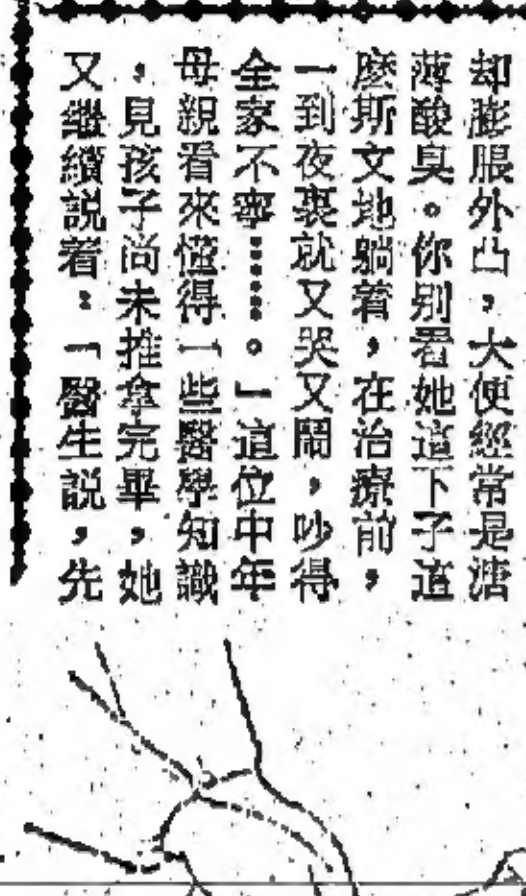 却膨脹外凸，大便經常是溏
薄酸臭。你别看她這下子這
麽斯文地躺着，在治療前，
一到夜裏就又哭又鬧，吵得
全家不寧……。」這位中年
母親看來懂得一些醫學知識
，見孩子尚未推拿完畢，她
又繼續説着：「醫生説，先